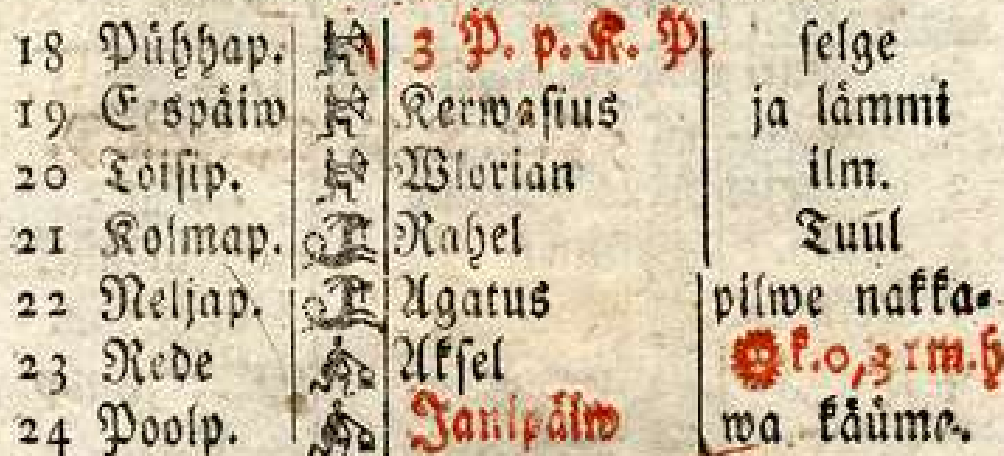 18 Pühhap. 3 P. p. K. P. selge
19 Espäiw Kerwasius ja lämmi
20 Töisip. Wlorian ilm.
21 Kolmap. Rahel Tuul
22 Neljap. Agatus pilwe nakka-
23 Rede Aksel k.0,31m.h
24 Poolp. Janipäiw wa käüme-